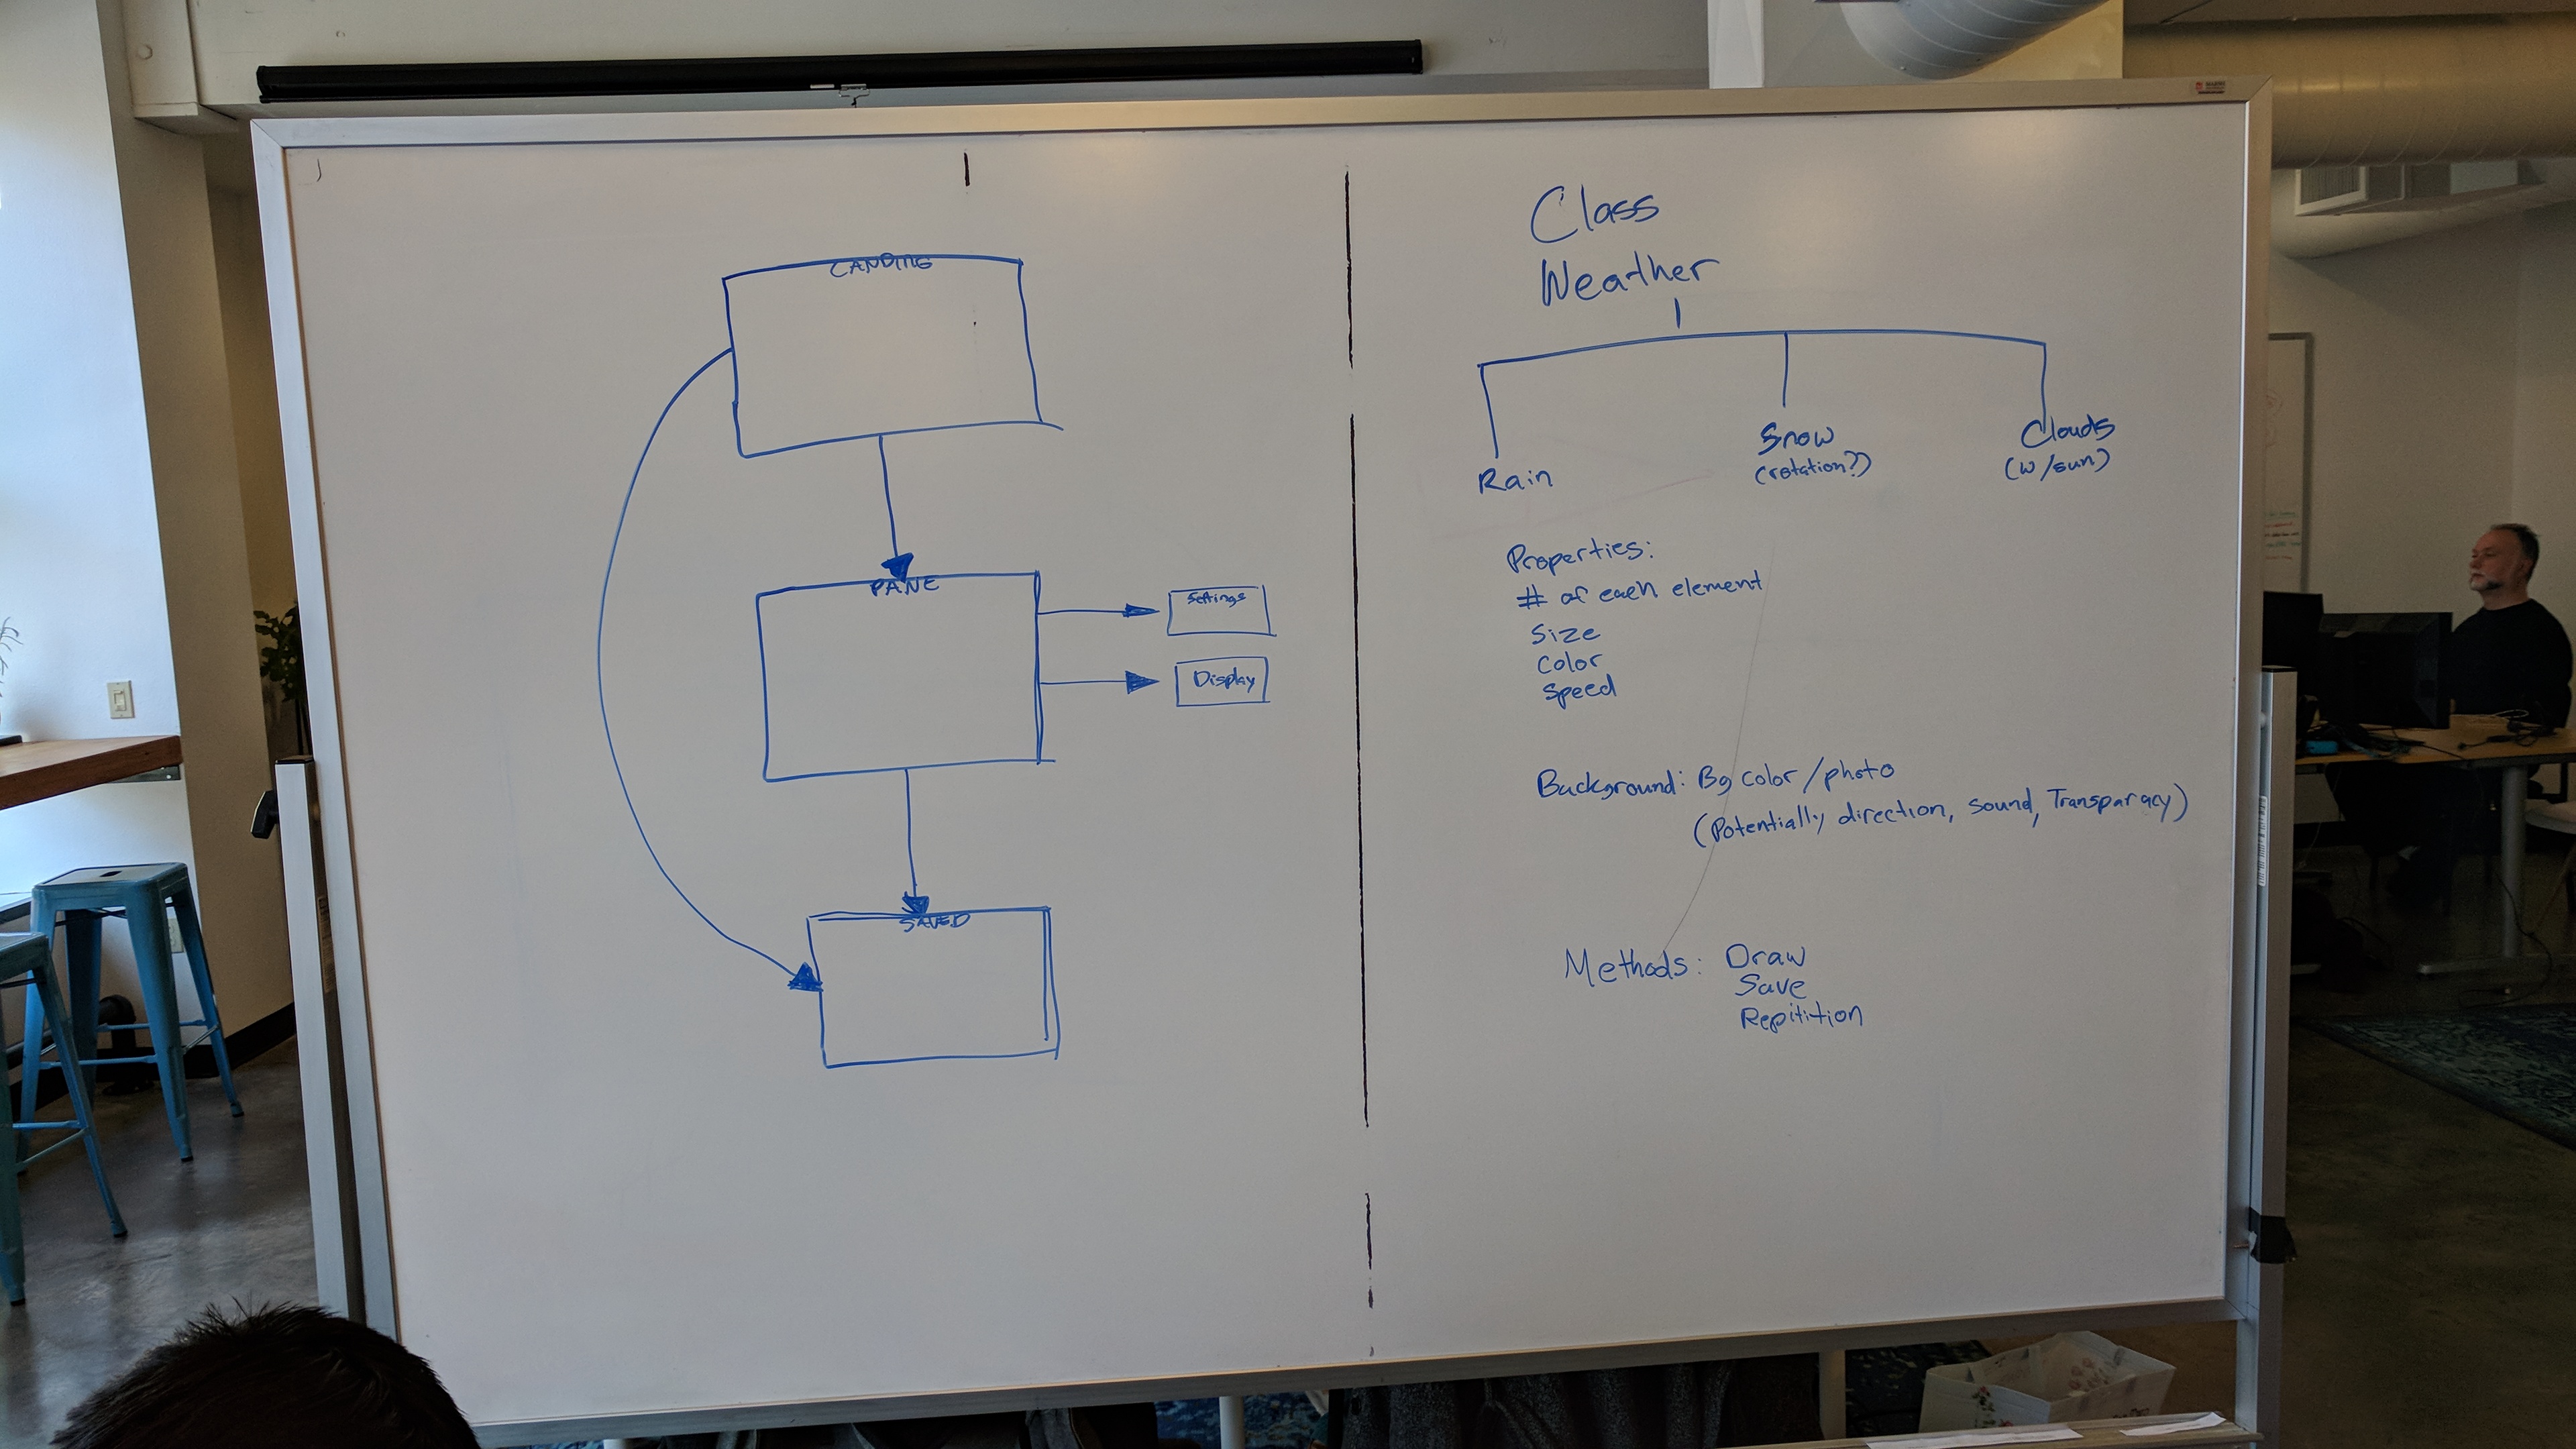 LANDING
PANE
Settings
Display
SAVED
Class
Weather
Rain
Snow
(rotation?)
Clouds
(w/sun)
Properties:
# of each element
Size
Color
Speed
Background: Bg color/photo
(Potentially direction, sound, Transparacy)
Methods: Draw
Save
Repitition